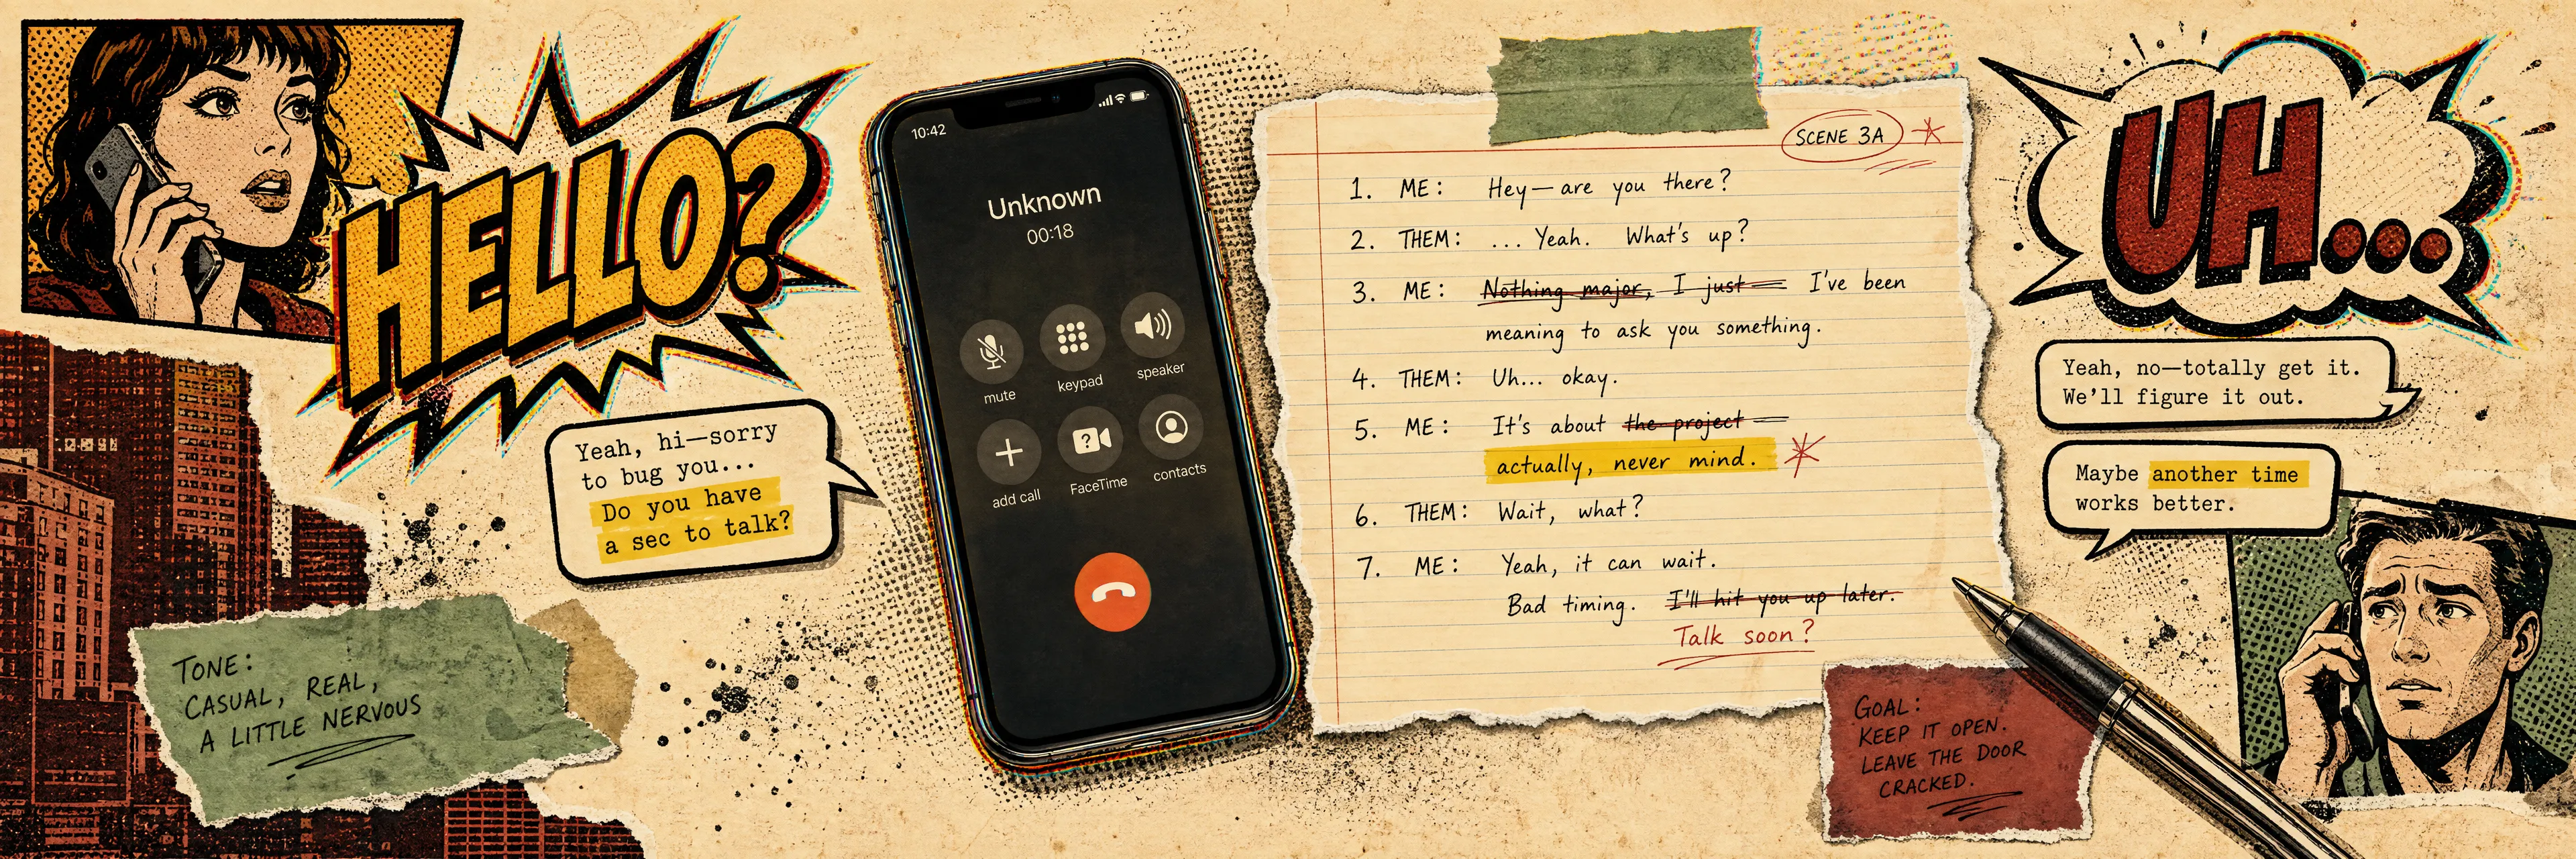 HELLO?
Yeah, hi—sorry
to bug you...
Do you have
a sec to talk?
TONE:
CASUAL, REAL,
A LITTLE NERVOUS
10:42
Unknown
00:18
mute keypad speaker
add call FaceTime contacts
SCENE 3A
1. ME: Hey— are you there?
2. THEM: ... Yeah. What's up?
3. ME: Nothing major, I just — I've been
meaning to ask you something.
4. THEM: Uh... okay.
5. ME: It's about the project —
actually, never mind.
6. THEM: Wait, what?
7. ME: Yeah, it can wait.
Bad timing. I'll hit you up later.
Talk soon?
GOAL:
KEEP IT OPEN.
LEAVE THE DOOR
CRACKED.
UH...
Yeah, no—totally get it.
We'll figure it out.
Maybe another time
works better.